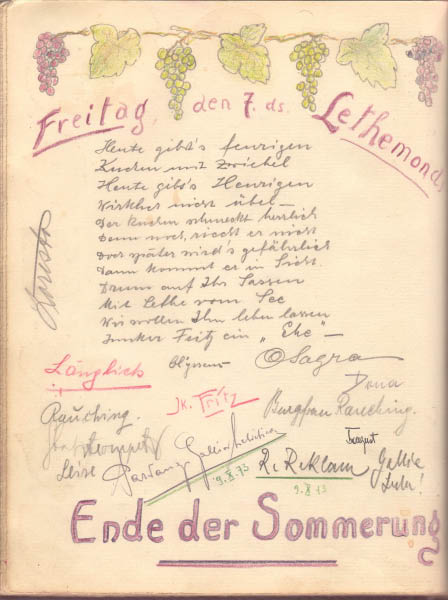 Freitag, den 7. ds. Lethemond,
Heute gibt's feurigen
Kuchen mit Zwiebel
Heute gibt's Heurigen
Wirklich nicht übel—
Der Kuchen schmeckt herrlich
Denn noch, riecht er nicht
Doch später wird's gefährlich
Dann kommt er in Sicht.
Drum auf Ihr Sassen
Mit Lethe vom See
Wir wollen Ihn leben lassen
Junker Fritz ein „Ehe" —
Länglich
Jk. Fritz
OSagra
Dona
Rauching.
Burgfrau Rauching.
Leise
9.X.73
R. Reklam
9.X.73
Ende der Sommerung